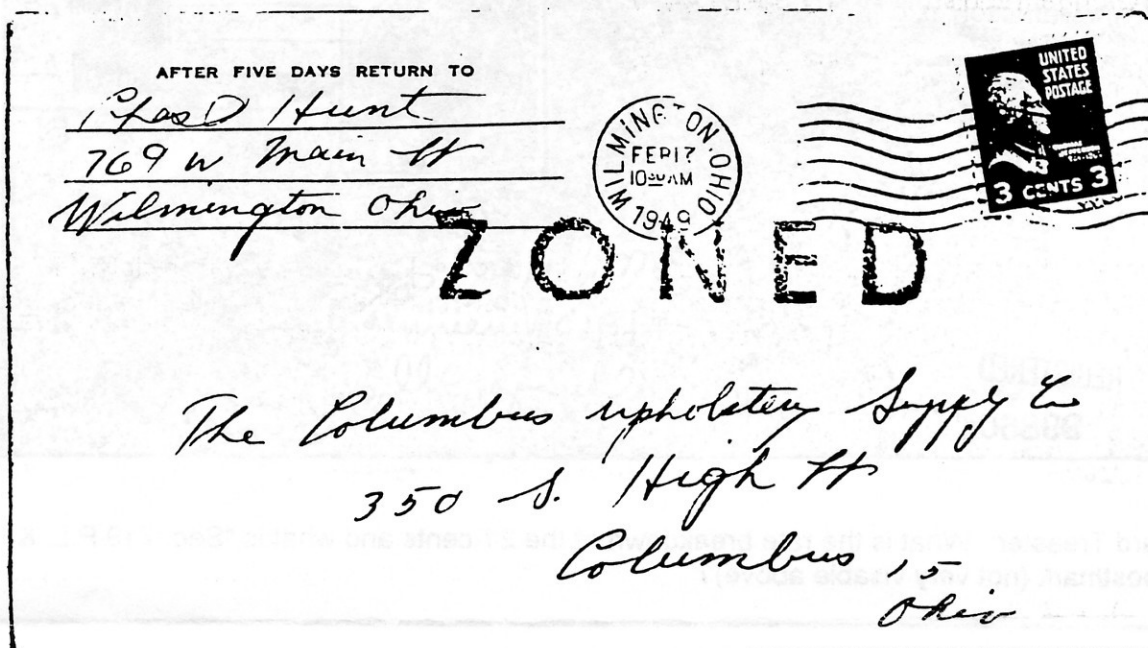 AFTER FIVE DAYS RETURN TO
Chas D Hunt
769 W Main St
Wilmington Ohio
WILMINGTON OHIO
FEB 17
10 30 AM
1949
UNITED
STATES
POSTAGE
3 CENTS 3
ZONED
The Columbus Upholstery Supply Co
350 S. High St
Columbus 15
Ohio